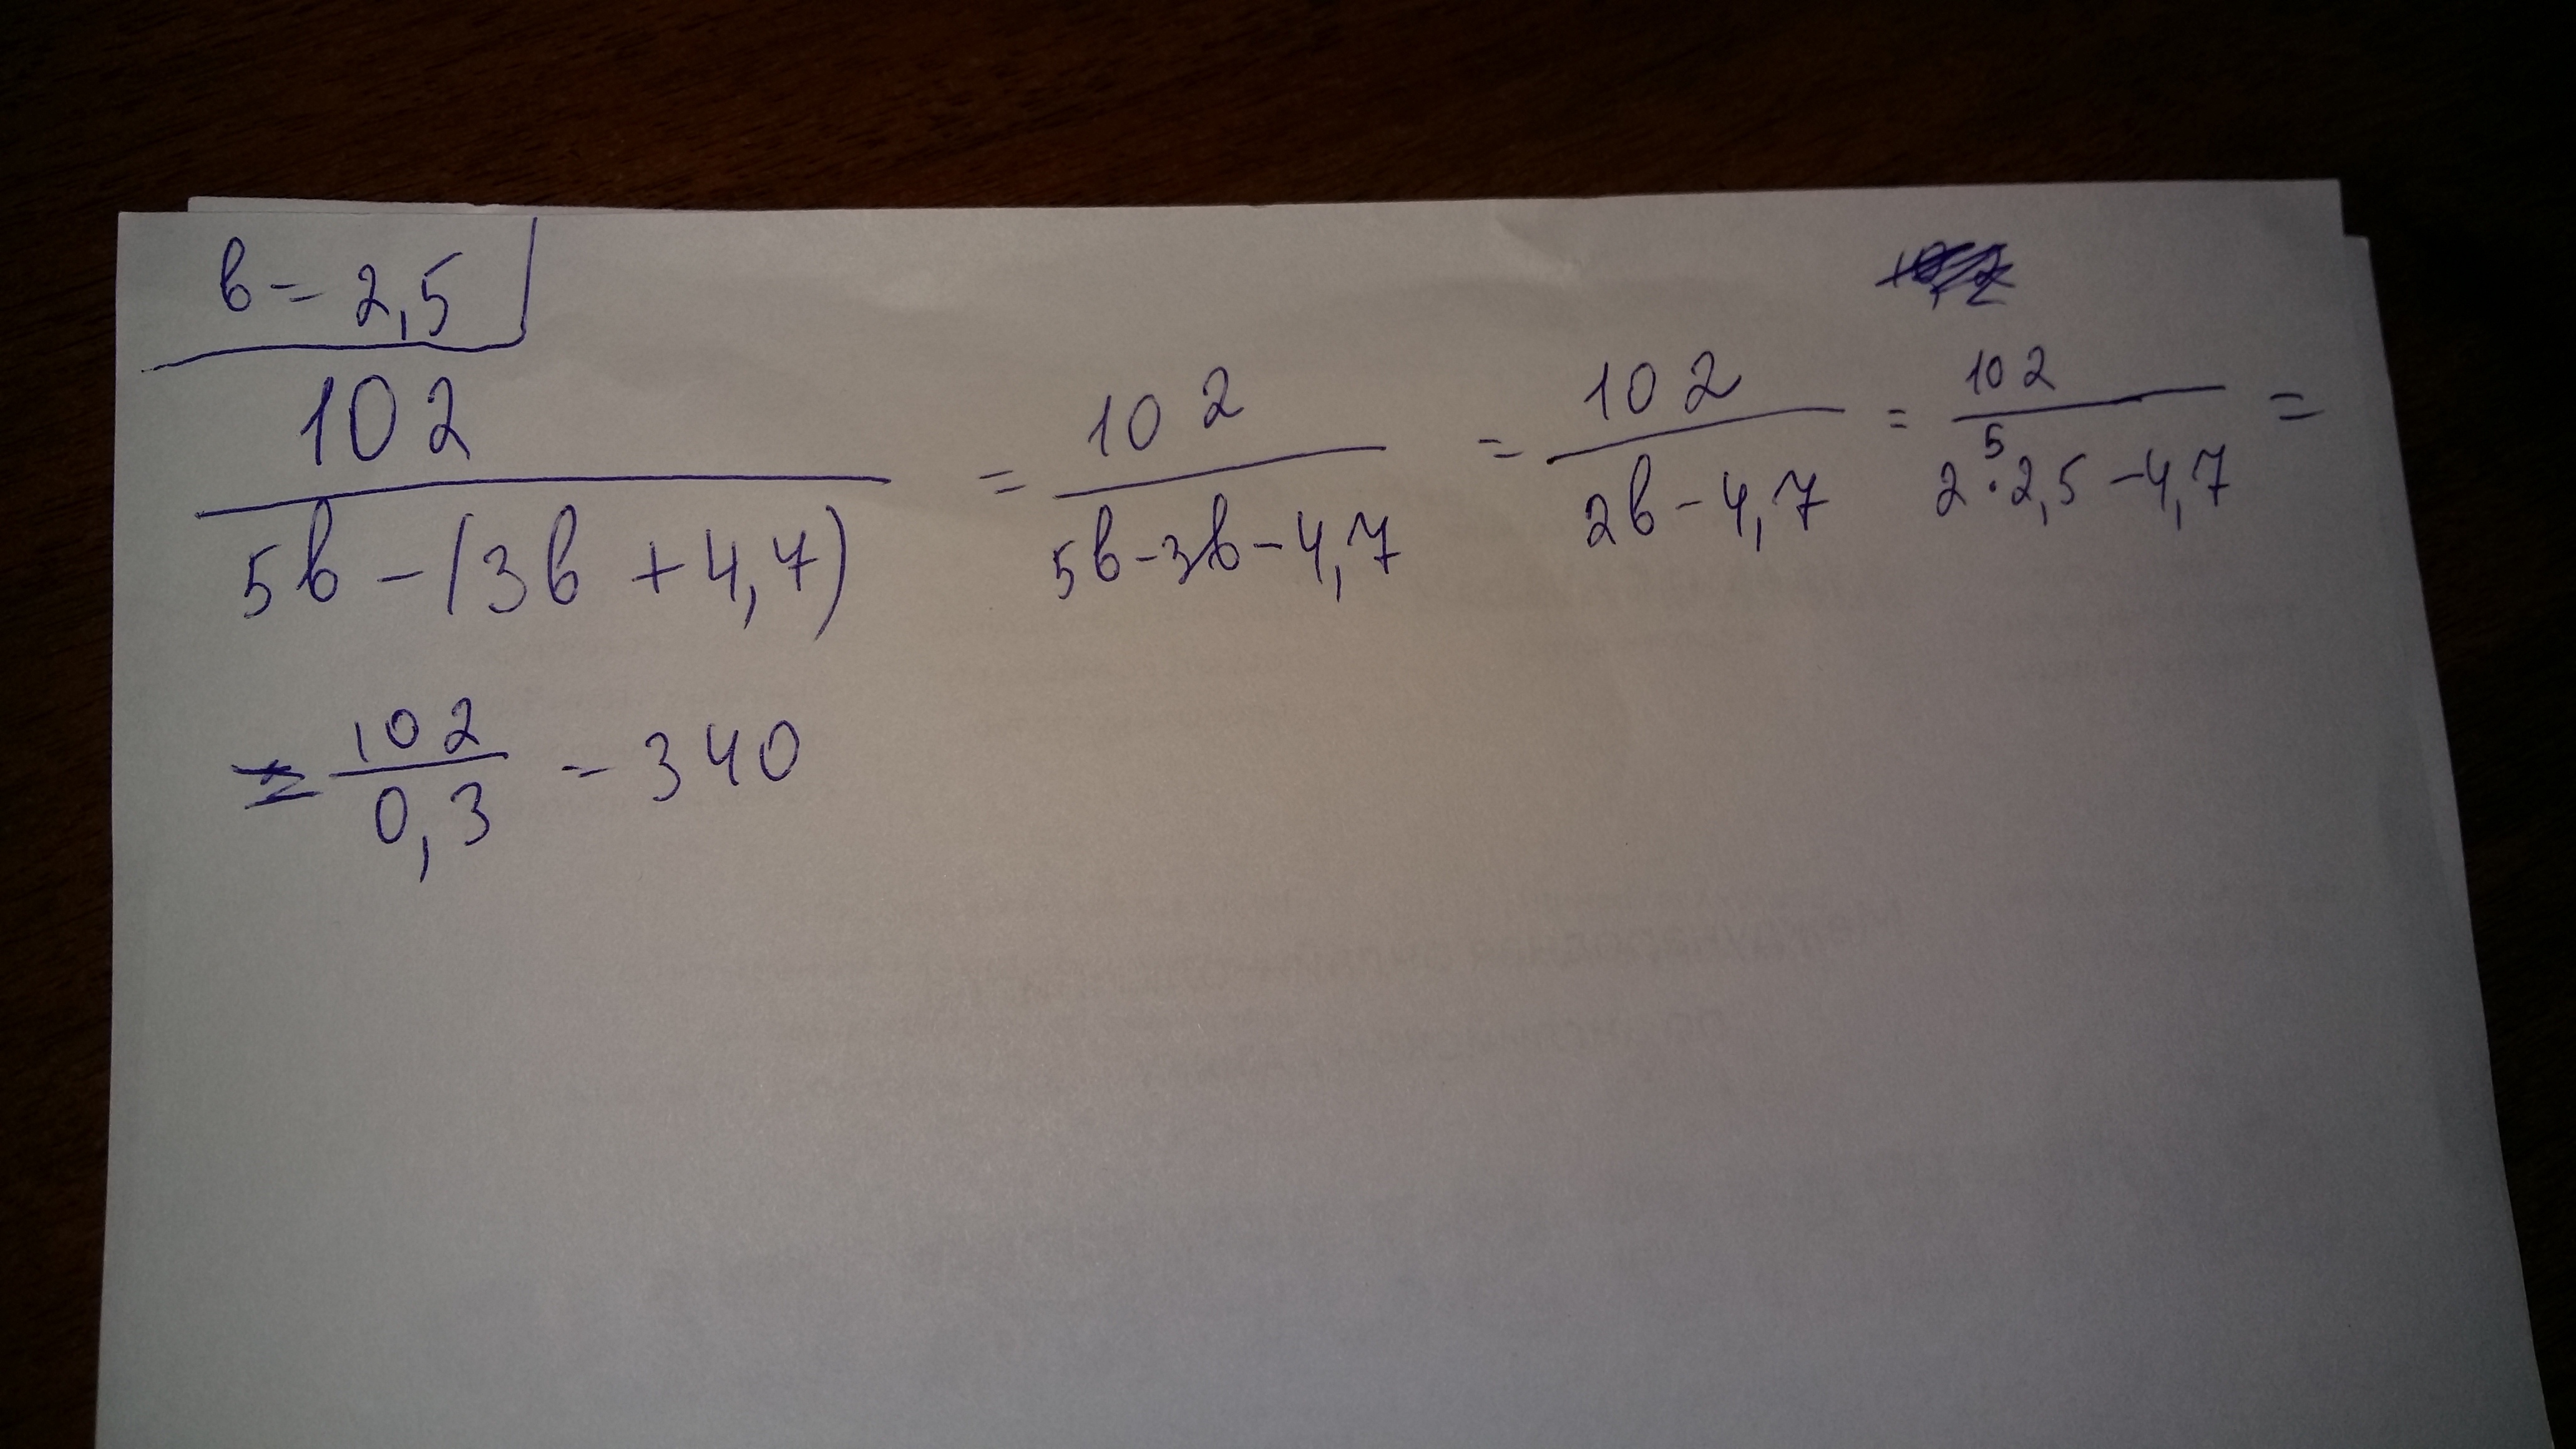 в = 2,5
102 / (5в - (3в + 4,7)) = 102 / (5в - 3в - 4,7) = 102 / (2в - 4,7) = 102 / (2 · 2,5 - 4,7) =
5
= 102 / 0,3 = 340